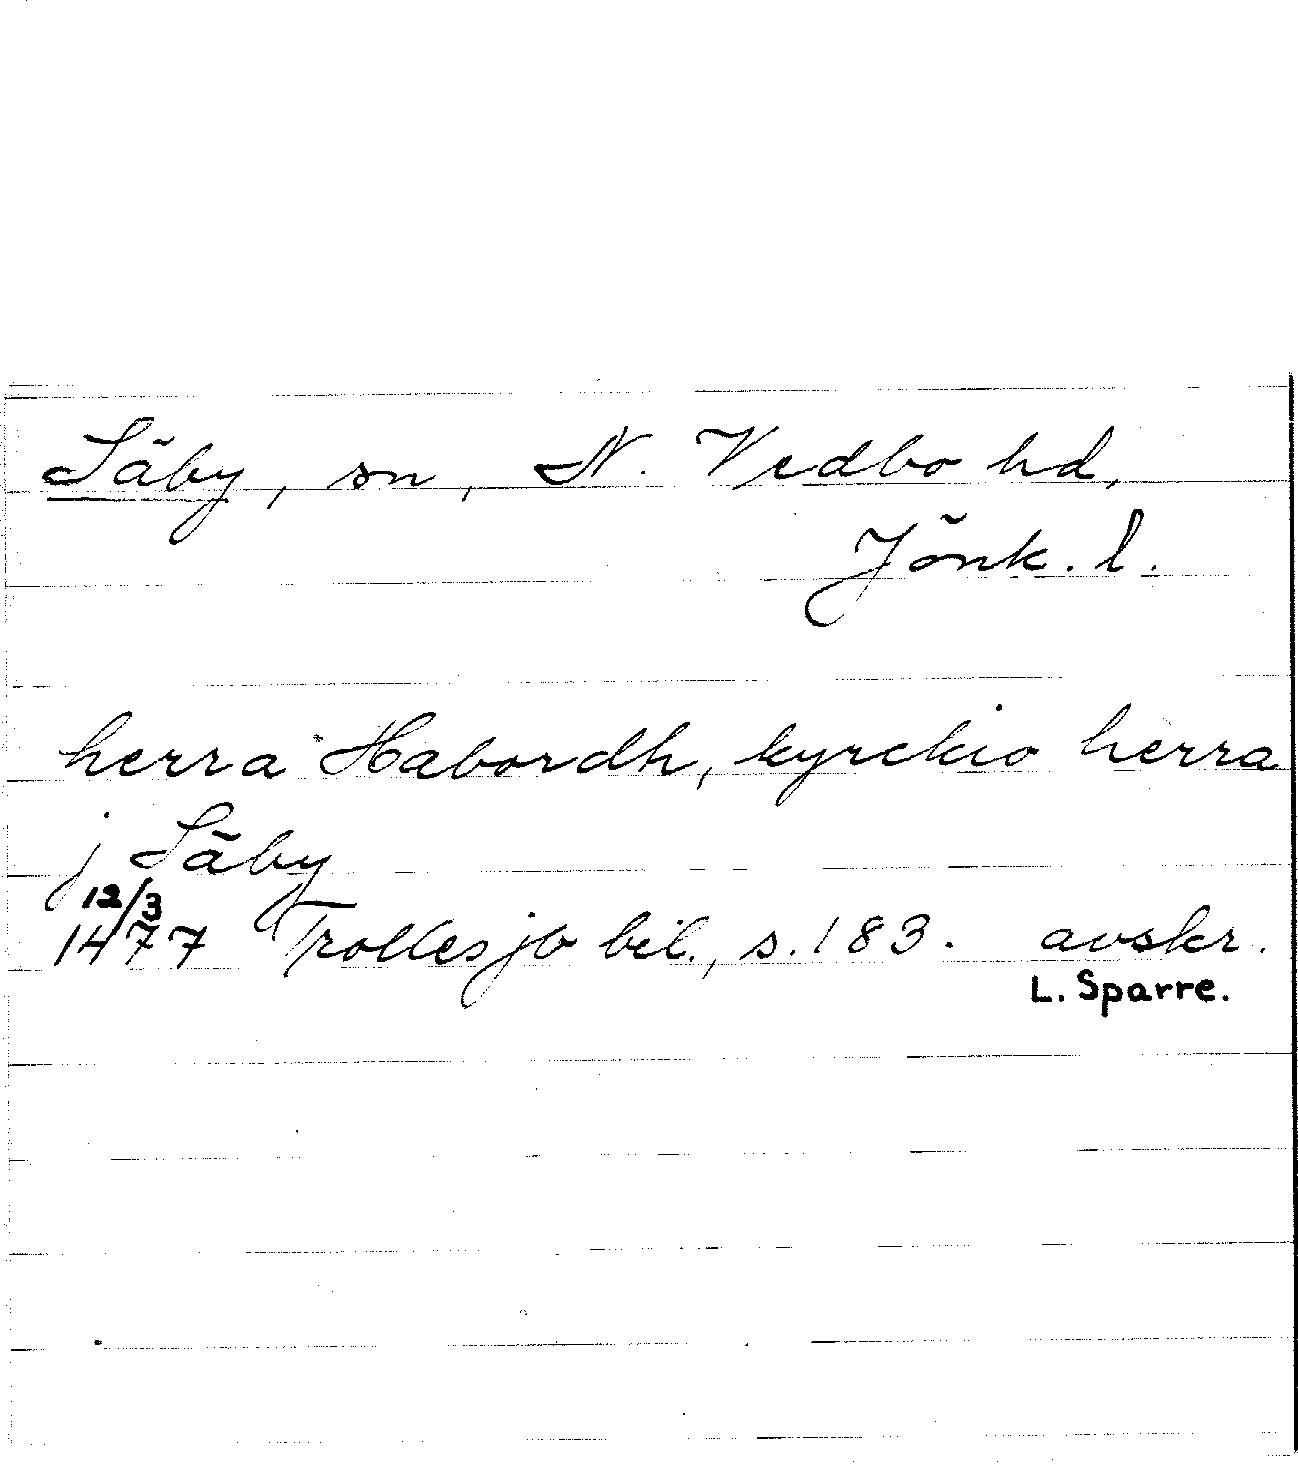 Säby, sn, N. Vedbo hd,
Jönk. l.
herra Habordh, kyrckio herra
j Säby
12/3
1477 Trolles jb bil., s. 183. avskr.
L. Sparre.